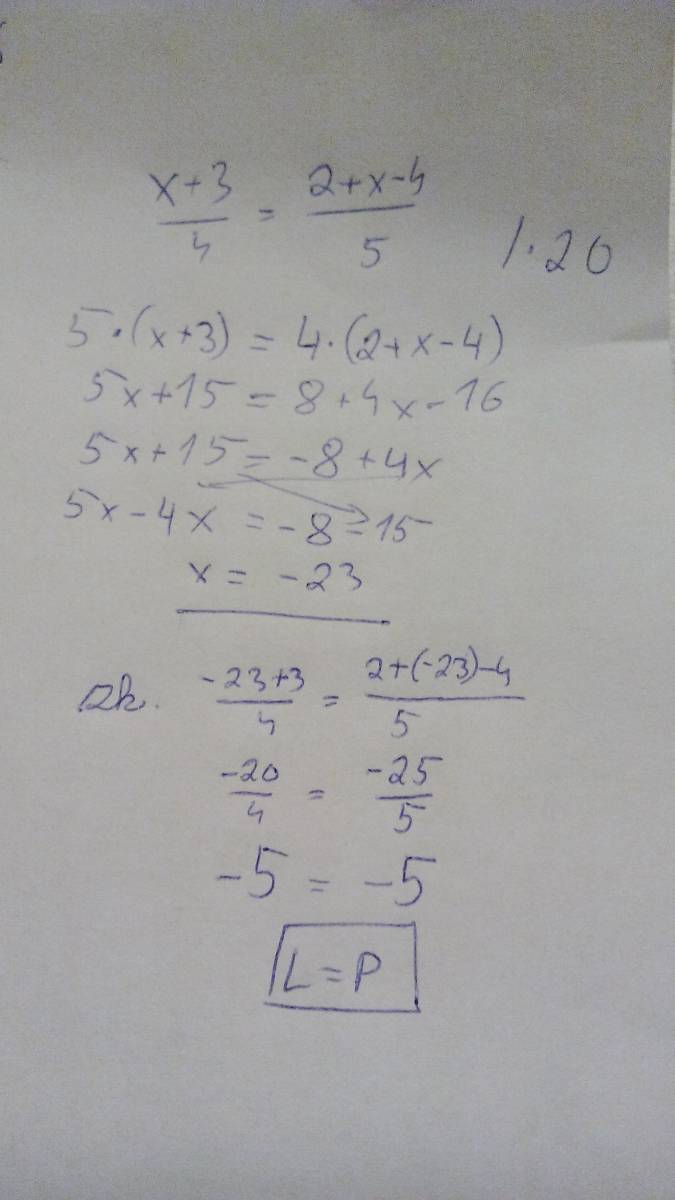 x+3/4 = 2+x-4/5 /·20
5·(x+3) = 4·(2+x-4)
5x+15 = 8+4x-16
5x+15 = -8+4x
5x-4x = -8-15
x = -23
Zk. -23+3/4 = 2+(-23)-4/5
-20/4 = -25/5
-5 = -5
L=P